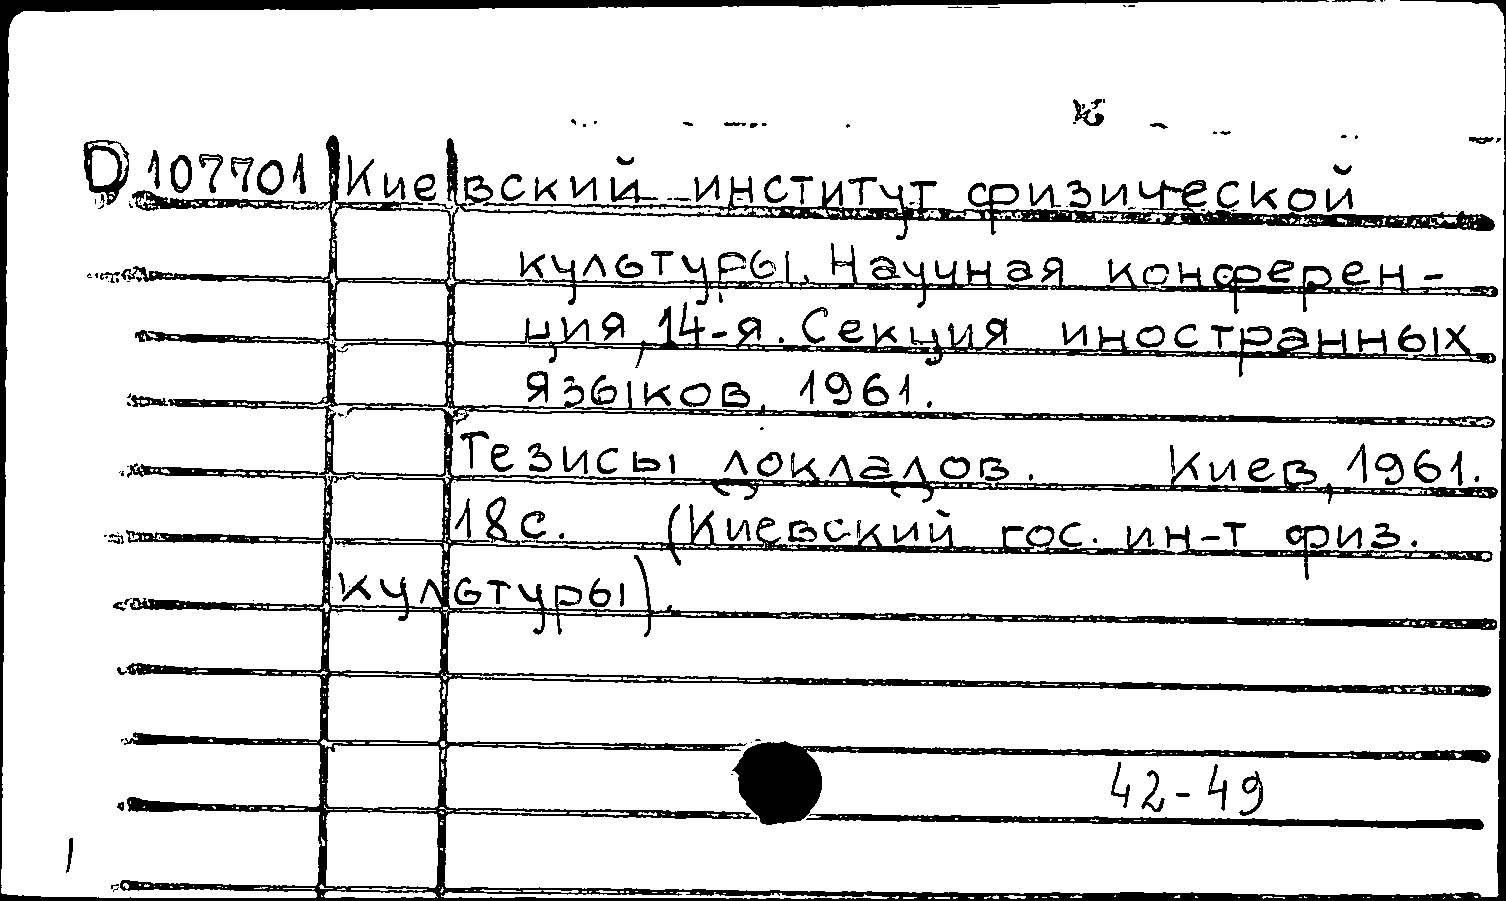 D 107701 Киевский институт физической
культуры. Научная конферен-
ция, 14-я. Секция иностранных
языков, 1961.
Тезисы докладов. Киев, 1961.
18с. (Киевский гос. ин-т физ.
культуры).
42-49